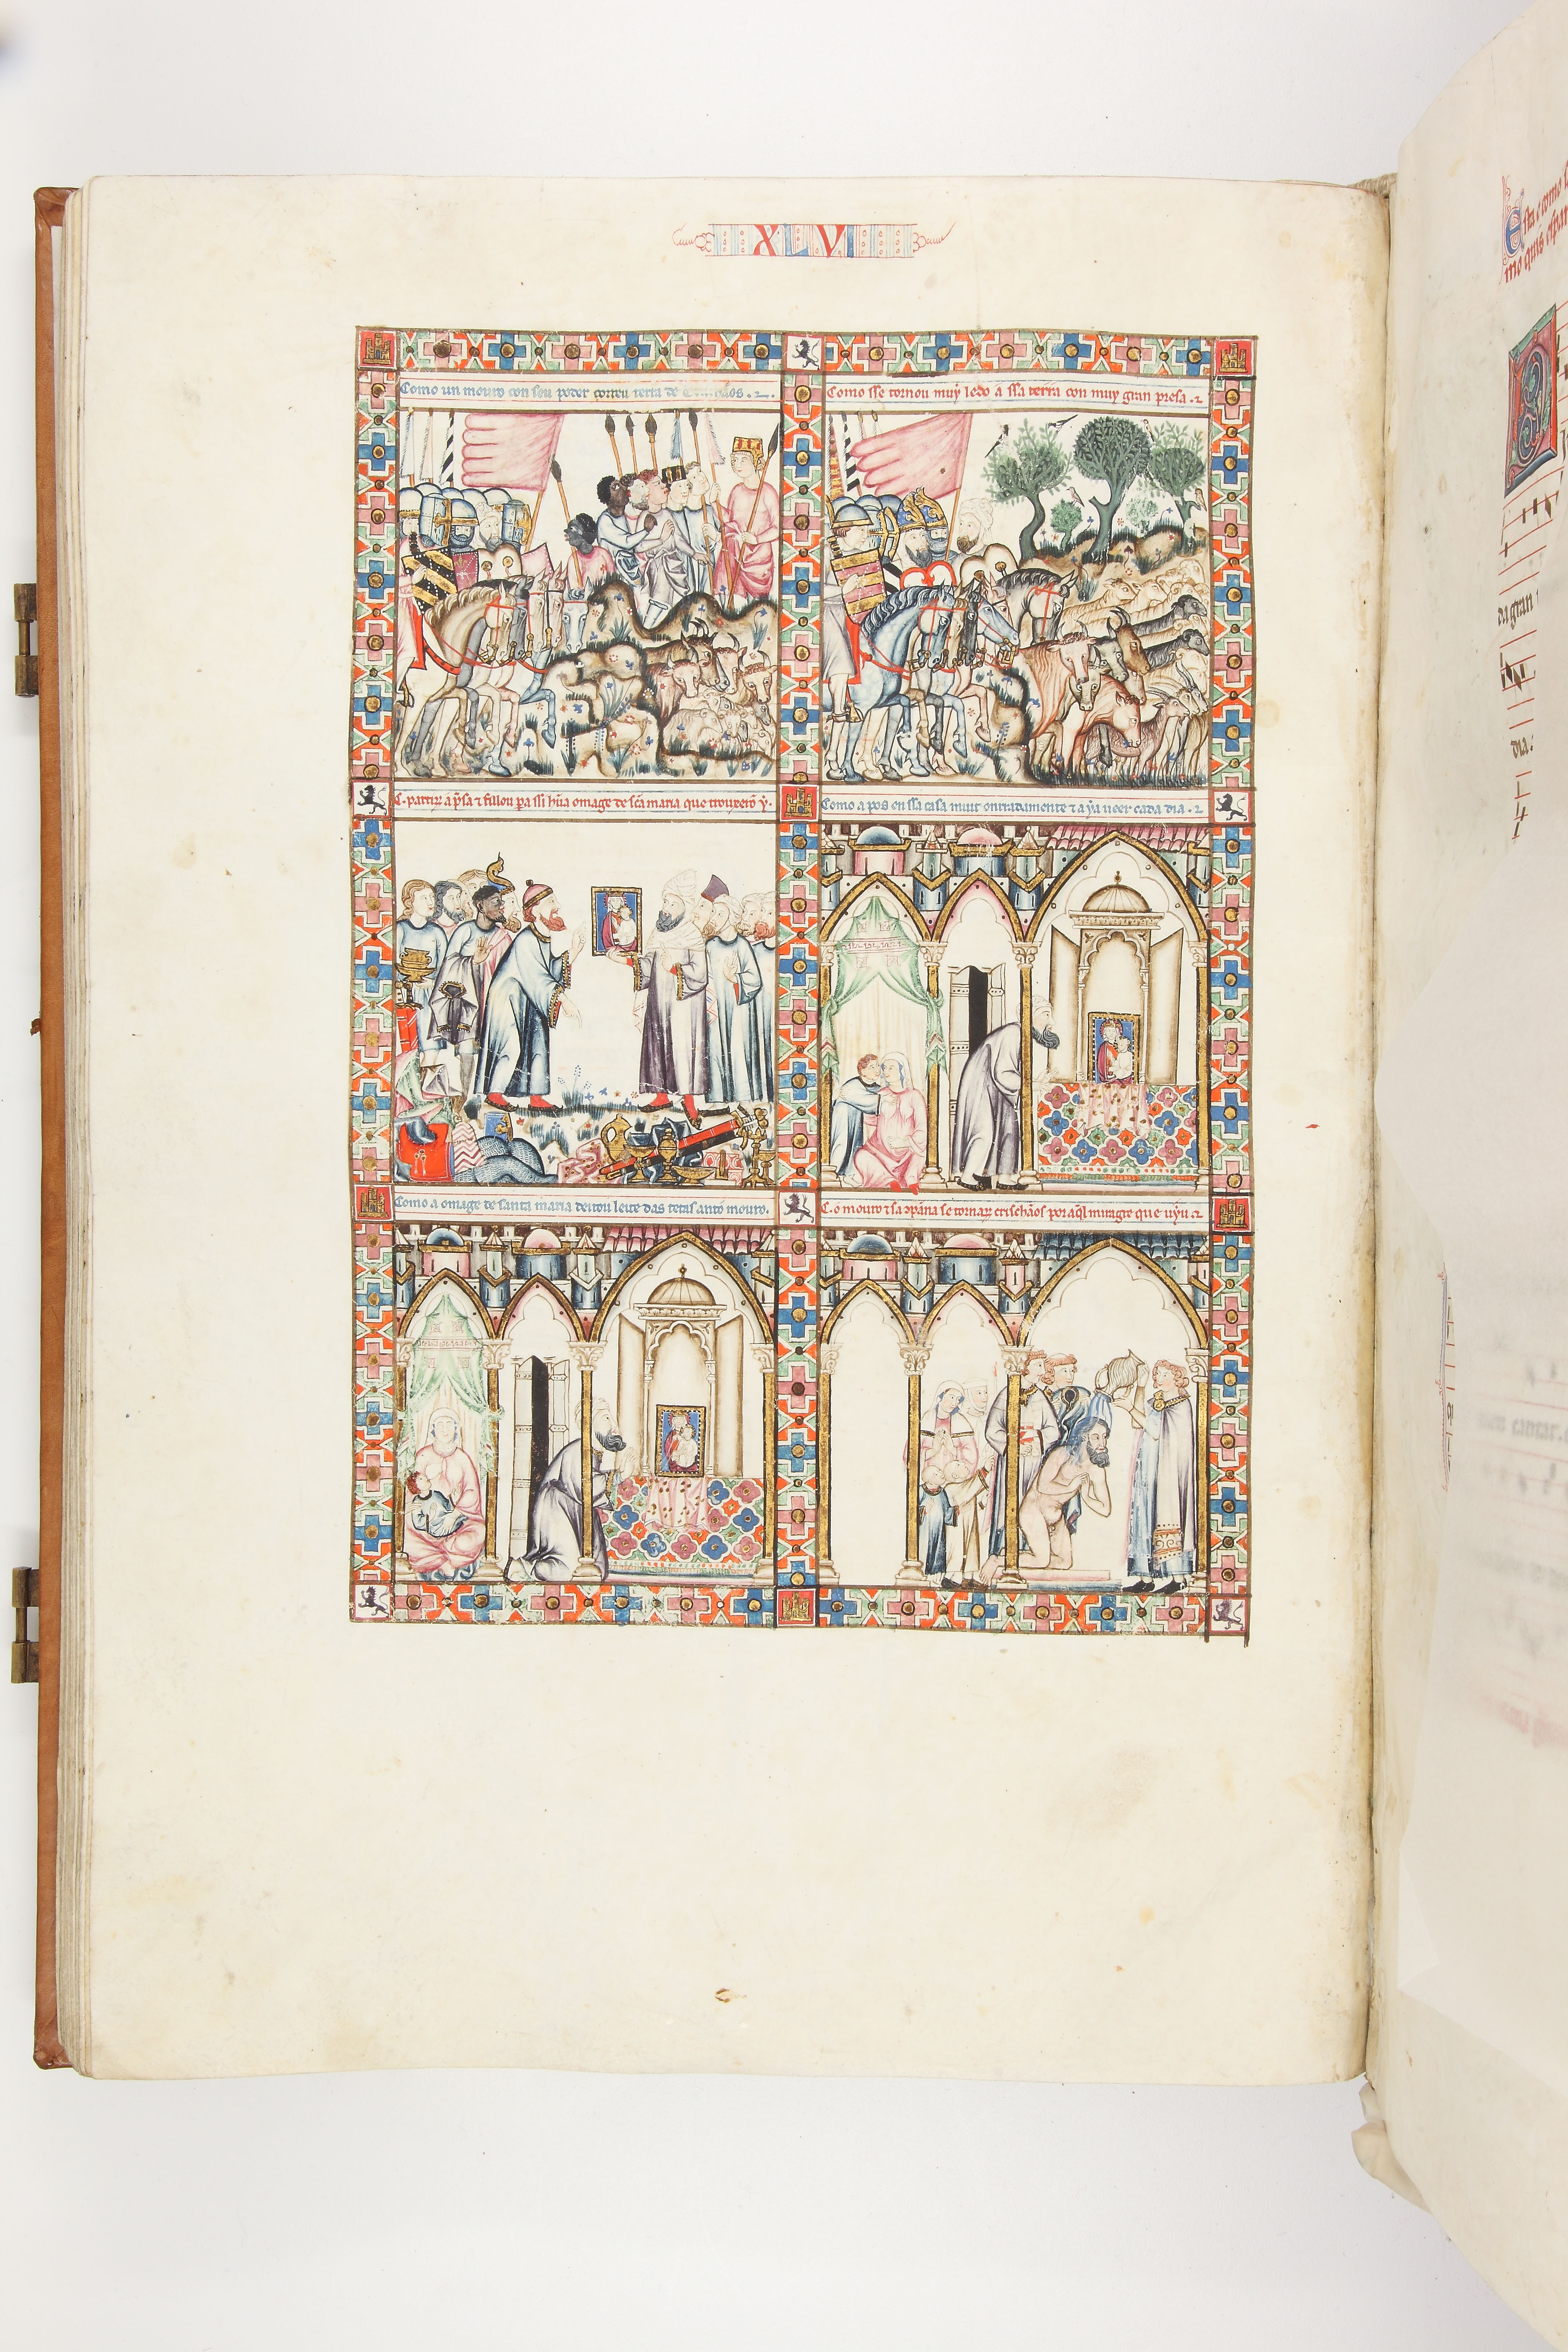 XLVI
Como un mouro con seu poder correu terra de Crischãos.
Como sse tornou muy ledo a ssa terra con muy gran presa.
C. partiu a p̃sa ⁊ fillou pa ssi hũa omage de sc̃a maria que trouxerõ y.
Como a pos en ssa casa muit onrradamente ⁊ a ya ueer cada dia.
Como a omage de santa maria deitou leite das tetas antó mouro.
C. o mouro ⁊ sa cõpãna se tornarõ crischãos por aq̃l miragre que uyũ
Esta é como
da gran
dia: